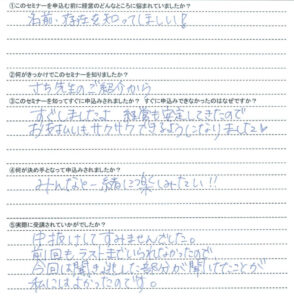 ①このセミナーを申込む前に経営のどんなところに悩まれていましたか？
名前・存在を知ってほしい！
②何がきっかけでこのセミナーを知りましたか？
さち先生のご紹介から
③このセミナーを知ってすぐに申込みされましたか？ すぐに申込みできなかったのはなぜですか？
すぐしましたよ 経営も安定してきたので
お支払いもサクサクできるようになりました♡
④何が決め手となって申込みされましたか？
みんなと一緒に楽しみたい!!
⑤実際に受講されていかがでしたか？
中抜けしてすみませんでした。
前回もラストまでいられなかったので
今回は聞き逃した部分が聞いてたことが
私にはよかったのです。